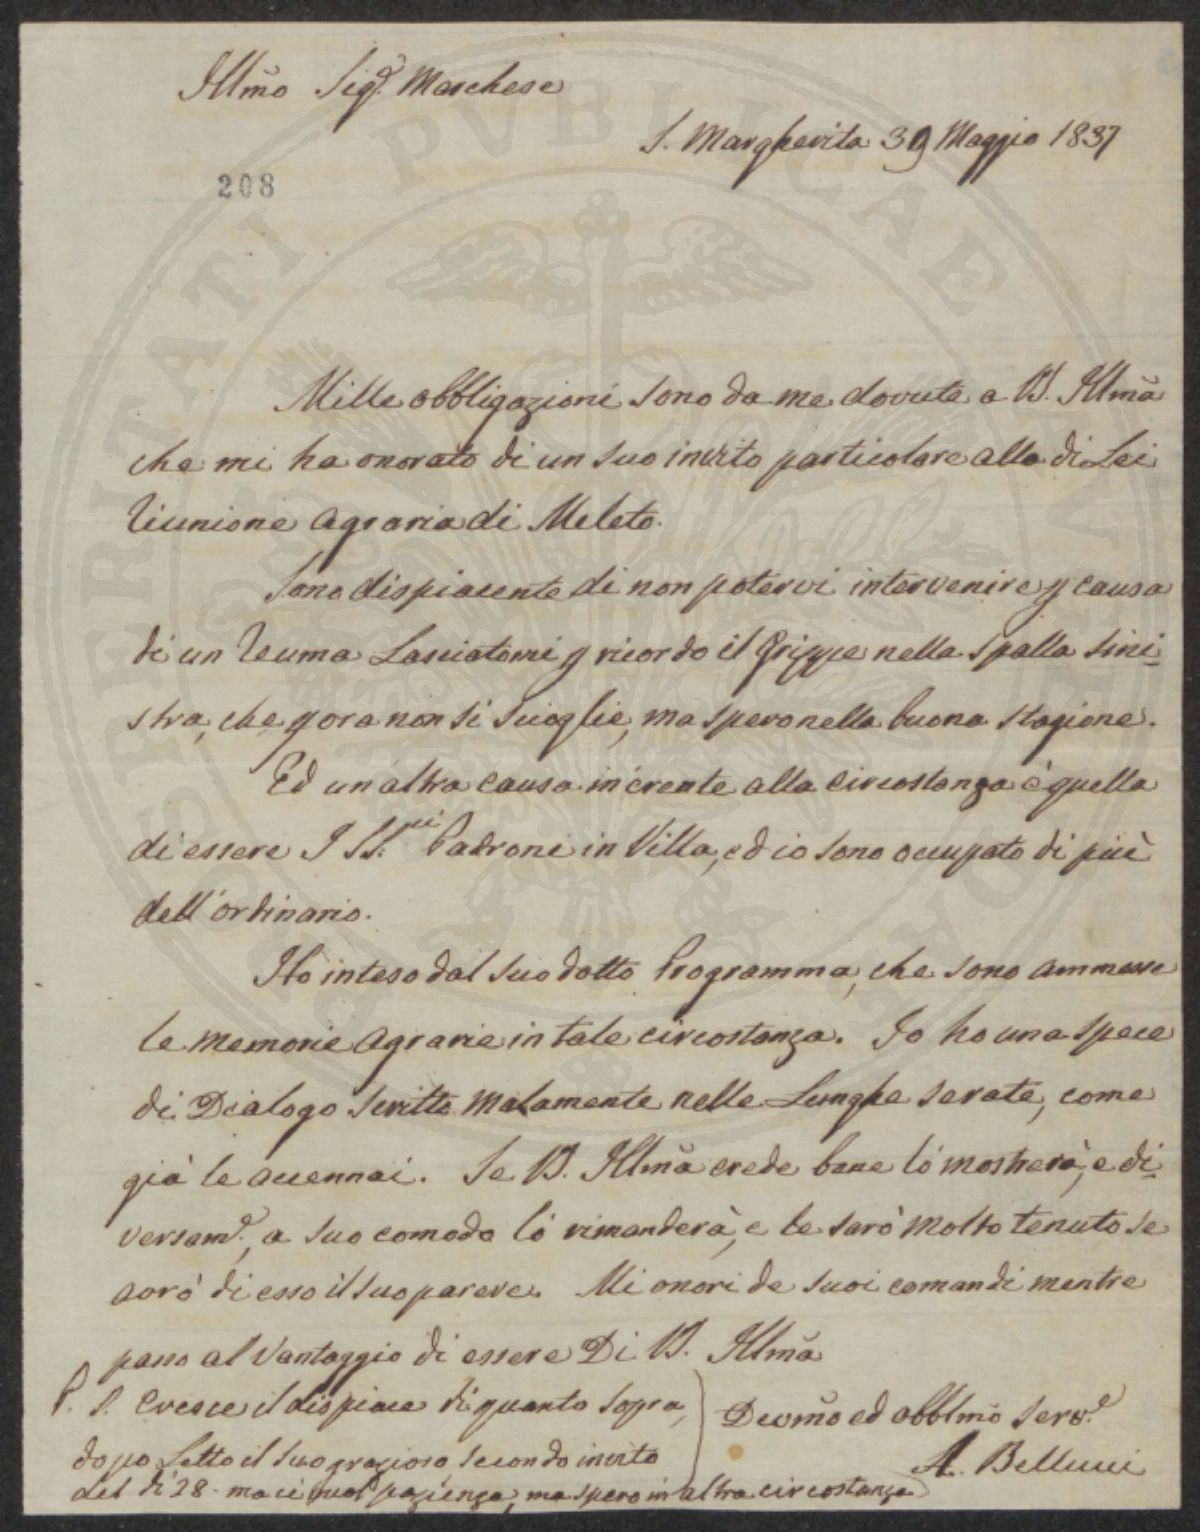 Illmo Sigr. Marchese
S. Margherita 30 Maggio 1837
208
Mille obbligazioni sono da me dovute a V. Illma
che mi ha onorato di un suo invito particolare alla di Lei
Riunione agraria di Meleto.
Sono dispiacente di non potervi intervenire p causa
di un Reuma Lasciatomi p ricordo il Grippe nella spalla sini-
stra, che p ora non si scioglie, ma spero nella buona stagione.
Ed un'altra causa inerente alla circostanza è quella
di essere I SS.ri Padroni in Villa, ed io sono occupato di più
dell'ordinario.
Hò inteso dal suo dotto Programma, che sono ammesse
le memorie agrarie in tale circostanza. Io ho una spece
di Dialogo scritto malamente nelle Lunghe serate, come
già le accennai. Se V. Illma crede bene ló mostrerà, e di-
versame., a suo comodo ló rimanderà, e le sarò molto tenuto se
avrò di esso il suo parere. Mi onori de suoi comandi mentre
passo al vantaggio di essere Di V. Illma
P. S. Cresce il dispiace di quanto sopra,
dopo Letto il suo grazioso secondo invito
del dì 28. ma ci vuol pazienza, ma spero in altra circostanza
Devmo ed obblmo serve.
A. Bellucci
PROSPERITATI PVBLICAE